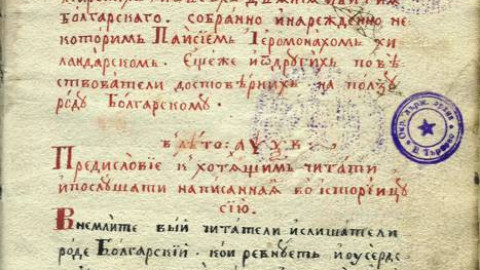 Болгарскаго. собранно и нареждено не
которим Паїсїем Їеромонахом хи
ландарском. Еще же и ѿ другїхъ повѣ
ствователи достовѣрнїхъ на ползу
роду Болгарскому.
в лѣто:
Предисловїе к хотѧщим читати
и послушати написанная во исторїицу
сїю.
Внемлите вый читатели и слишатели
роде Болгарскїй. кои ревнуетъ и оусердс